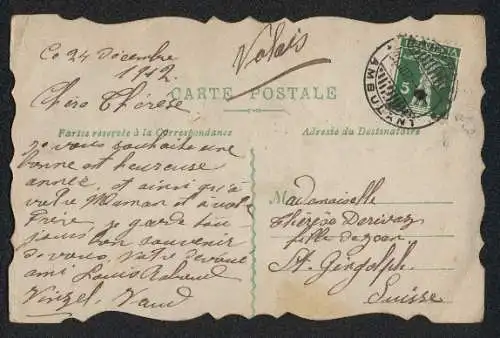 Ce 24 Décembre
1912.
Valais
HELVETIA
5
AMBULANT
Chère Thérèse
CARTE POSTALE
Partie réservée à la Correspondance
Adresse du Destinataire
je vous souhaite une
bonne et heureuse
année, et ainsi qu'à
votre Maman et à votre
Frère je garde tou
jours bon souvenir
de vous, Votre dévoué
ami Louis
Vinzel, Vaud
Mademoiselle
Thérèse Derivaz
fille de
St. Gingolph.
Suisse